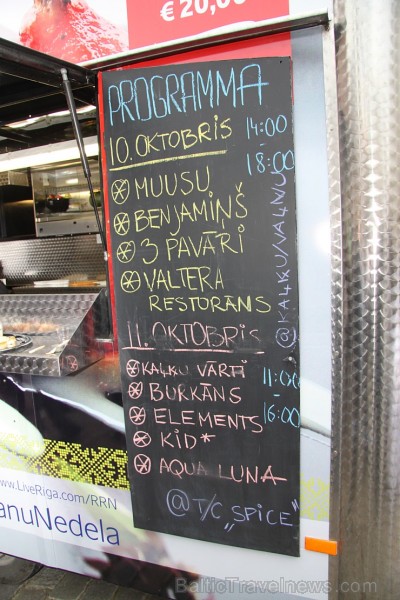 € 20,00
PROGRAMMA
10. OKTOBRIS 14:00 - 18:00
MUUSU
BENJAMIŅŠ
3 PAVĀRI
VALTERA
RESTORĀNS
@ KAĻĶU/VAĻŅU
11. OKTOBRIS
KAĻĶU VĀRTI 11:00 - 16:00
BURKĀNS
ELEMENTS
KID*
AQUA LUNA
@ T/C „SPICE"
www.LiveRiga.com/RRN
anuNedela
BalticTravelnews.com